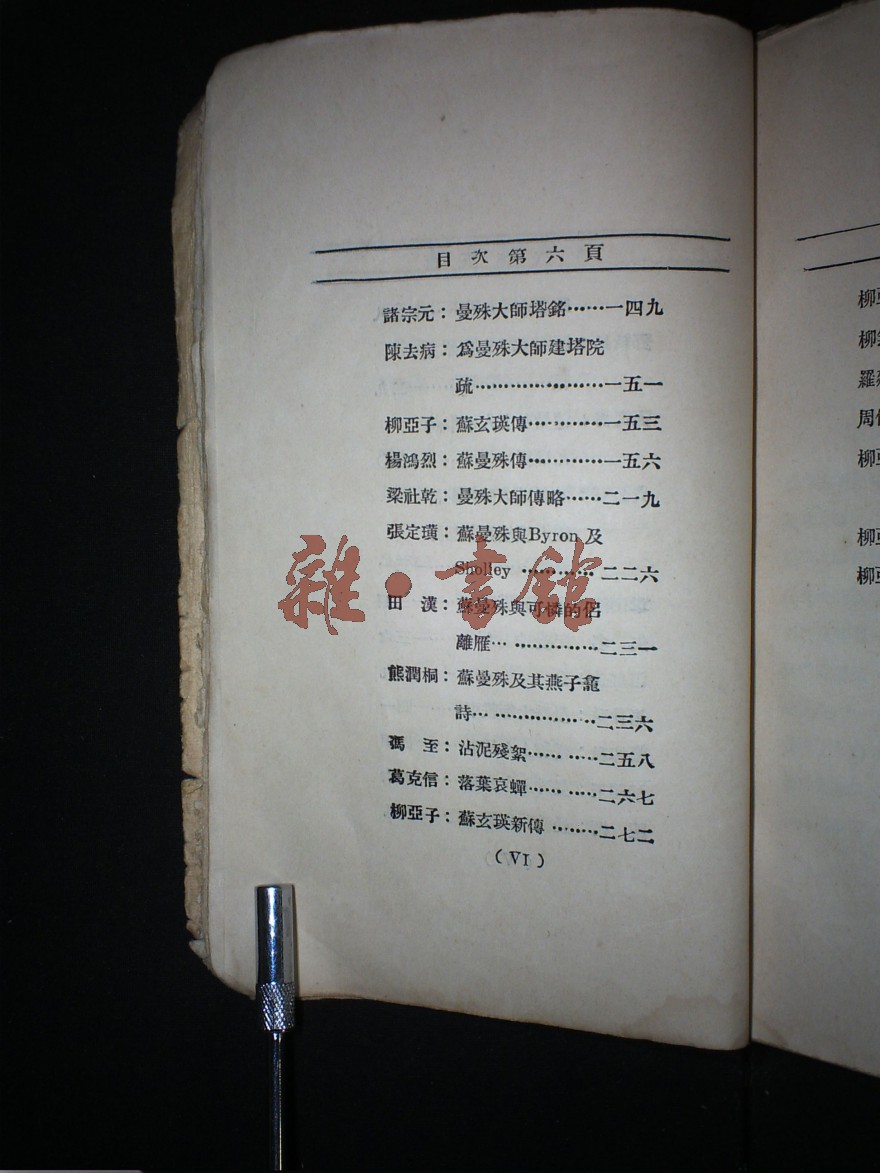 目次第六頁
諸宗元：曼殊大師塔銘……一四九
陳去病：為曼殊大師建塔院
疏…………………一五一
柳亞子：蘇玄瑛傳…………一五三
楊鴻烈：蘇曼殊傳…………一五六
梁社乾：曼殊大師傳略……二一九
張定璜：蘇曼殊與Byron及
Sholley …………二二六
田漢：蘇曼殊與可憐的侶
離雁… ……………二三一
熊潤桐：蘇曼殊及其燕子龕
詩… ………………二三六
馮至：沾泥殘絮…… ……二五八
葛克信：落葉哀蟬…… ……二六七
柳亞子：蘇玄瑛新傳 ………二七二
(VI)
雜·書館
柳
柳
羅
周
柳
柳
柳